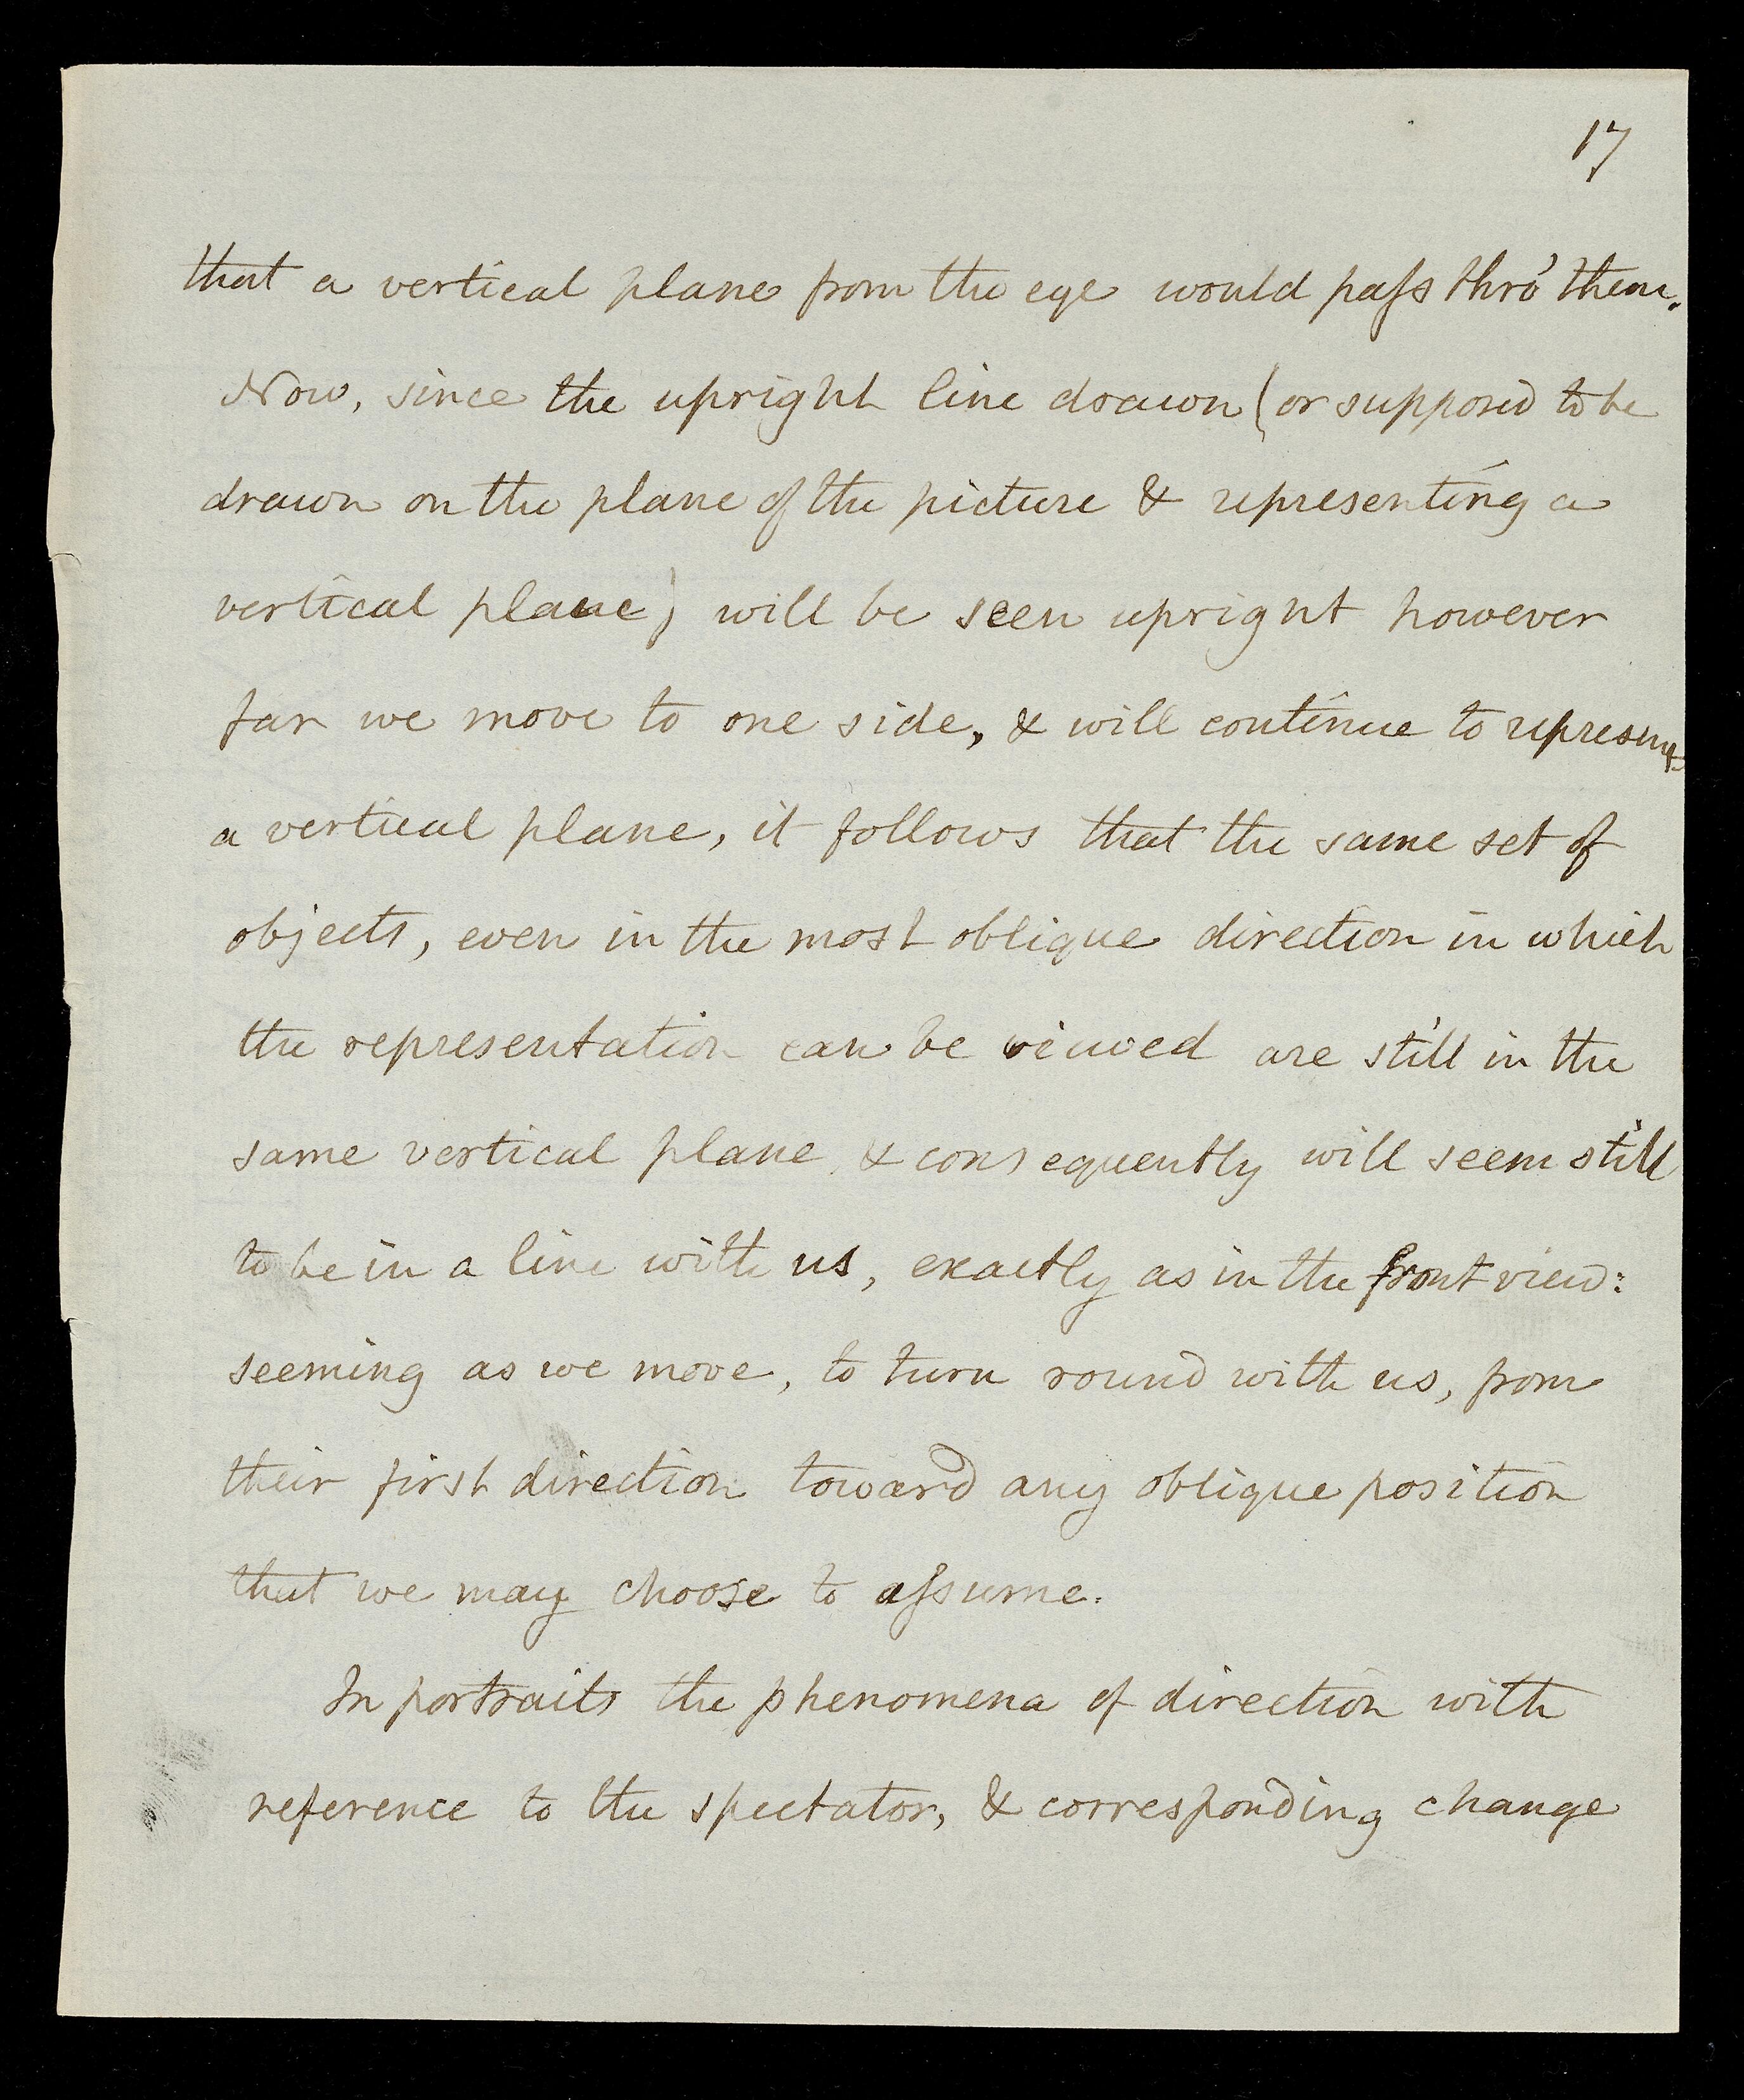 17
that a vertical plane from the eye would paſs thro' them.
Now, since the upright line drawn (or supposed to be
drawn on the plane of the picture & representing a
vertical plane) will be seen upright however
far we move to one side, & will continue to represent
a vertical plane, it follows that the same set of
objects, even in the most oblique direction in which
the representation can be viewed are still in the
same vertical plane & consequently will seem still
to be in a line with us, exactly as in the front view:
seeming as we move, to turn round with us, from
their first direction toward any oblique position
that we may choose to aſsume.
In portraits the phenomena of direction with
reference to the spectator, & corresponding change